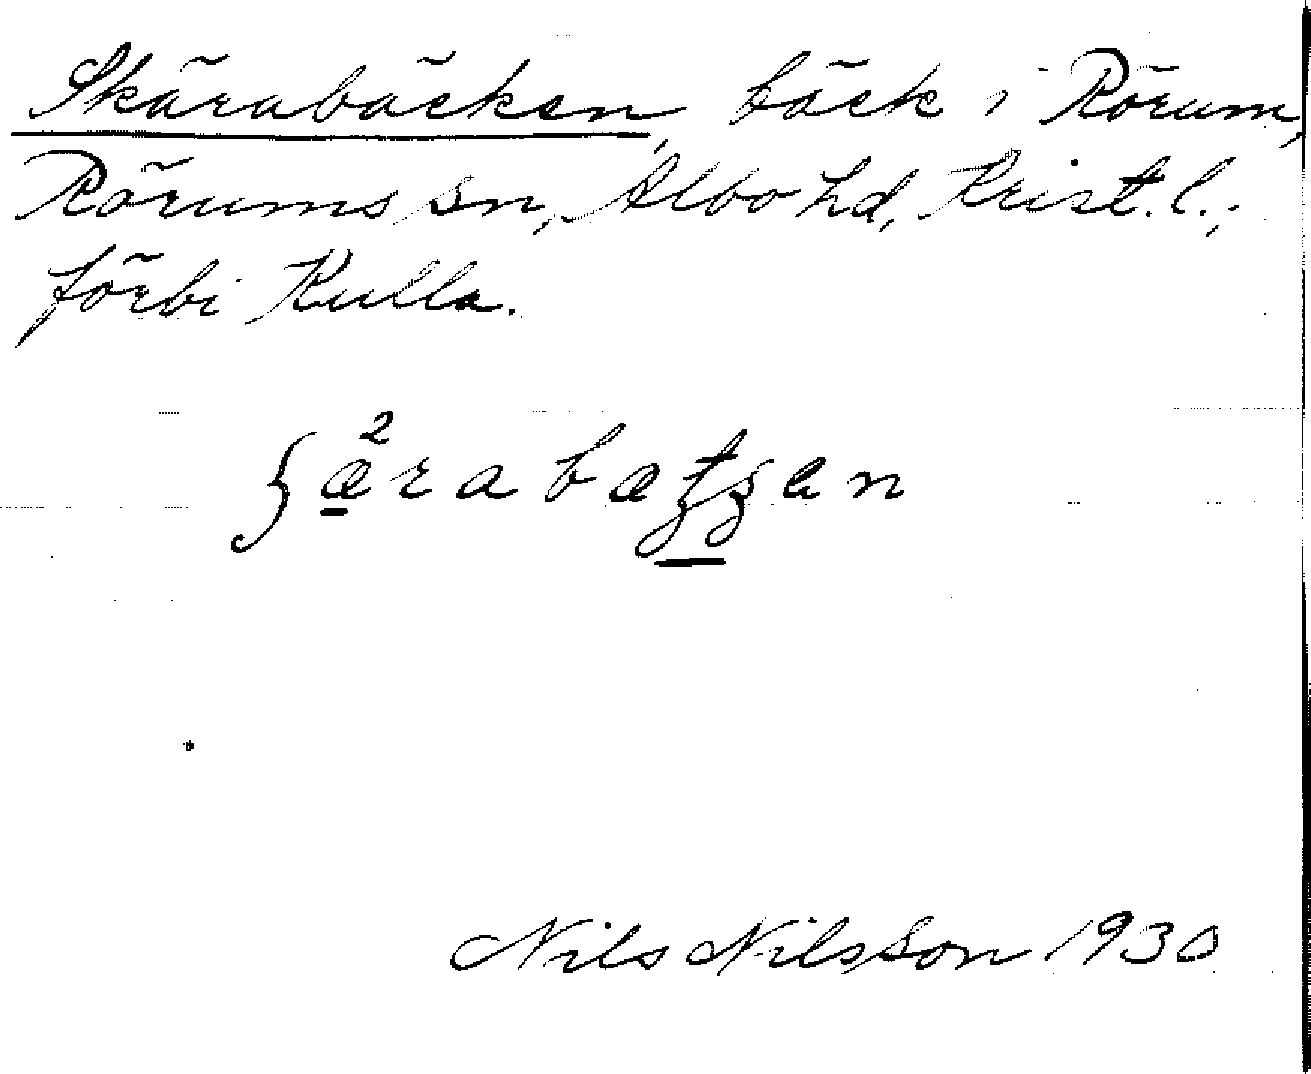 Skärabäcken, bäck i Rörum,
Rörums sn, Albo hd, Krist. l.;
förbi Kulla.
2
ʃærabæƫʂen
Nils Nilsson 1930